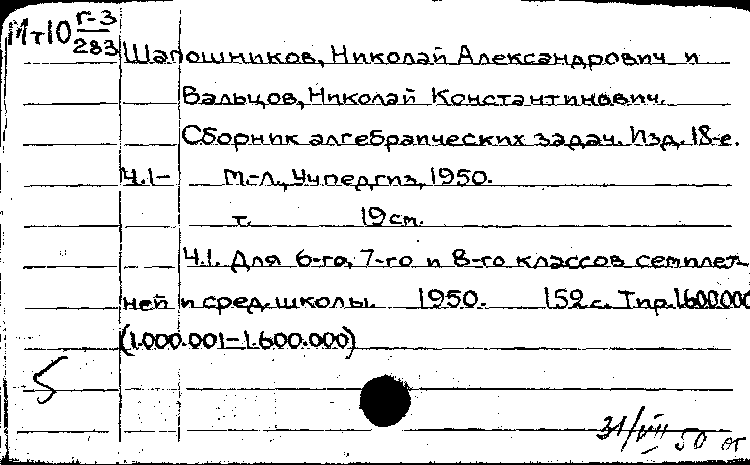 Мт10 Г-3
283
Шапошников, Николай Александрович и
Вальцов, Николай Константинович.
Сборник алгебраических задач. Изд. 18-е.
Ч.1- М.-Л., Учпедгиз, 1950.
т. 19 см.
Ч.1. Для 6-го, 7-го и 8-го классов семилет-
ней и сред. школы. 1950. 152 с. Тир. 1.600.000
(1.000.001-1.600.000)
5
31/VIII 50 ог